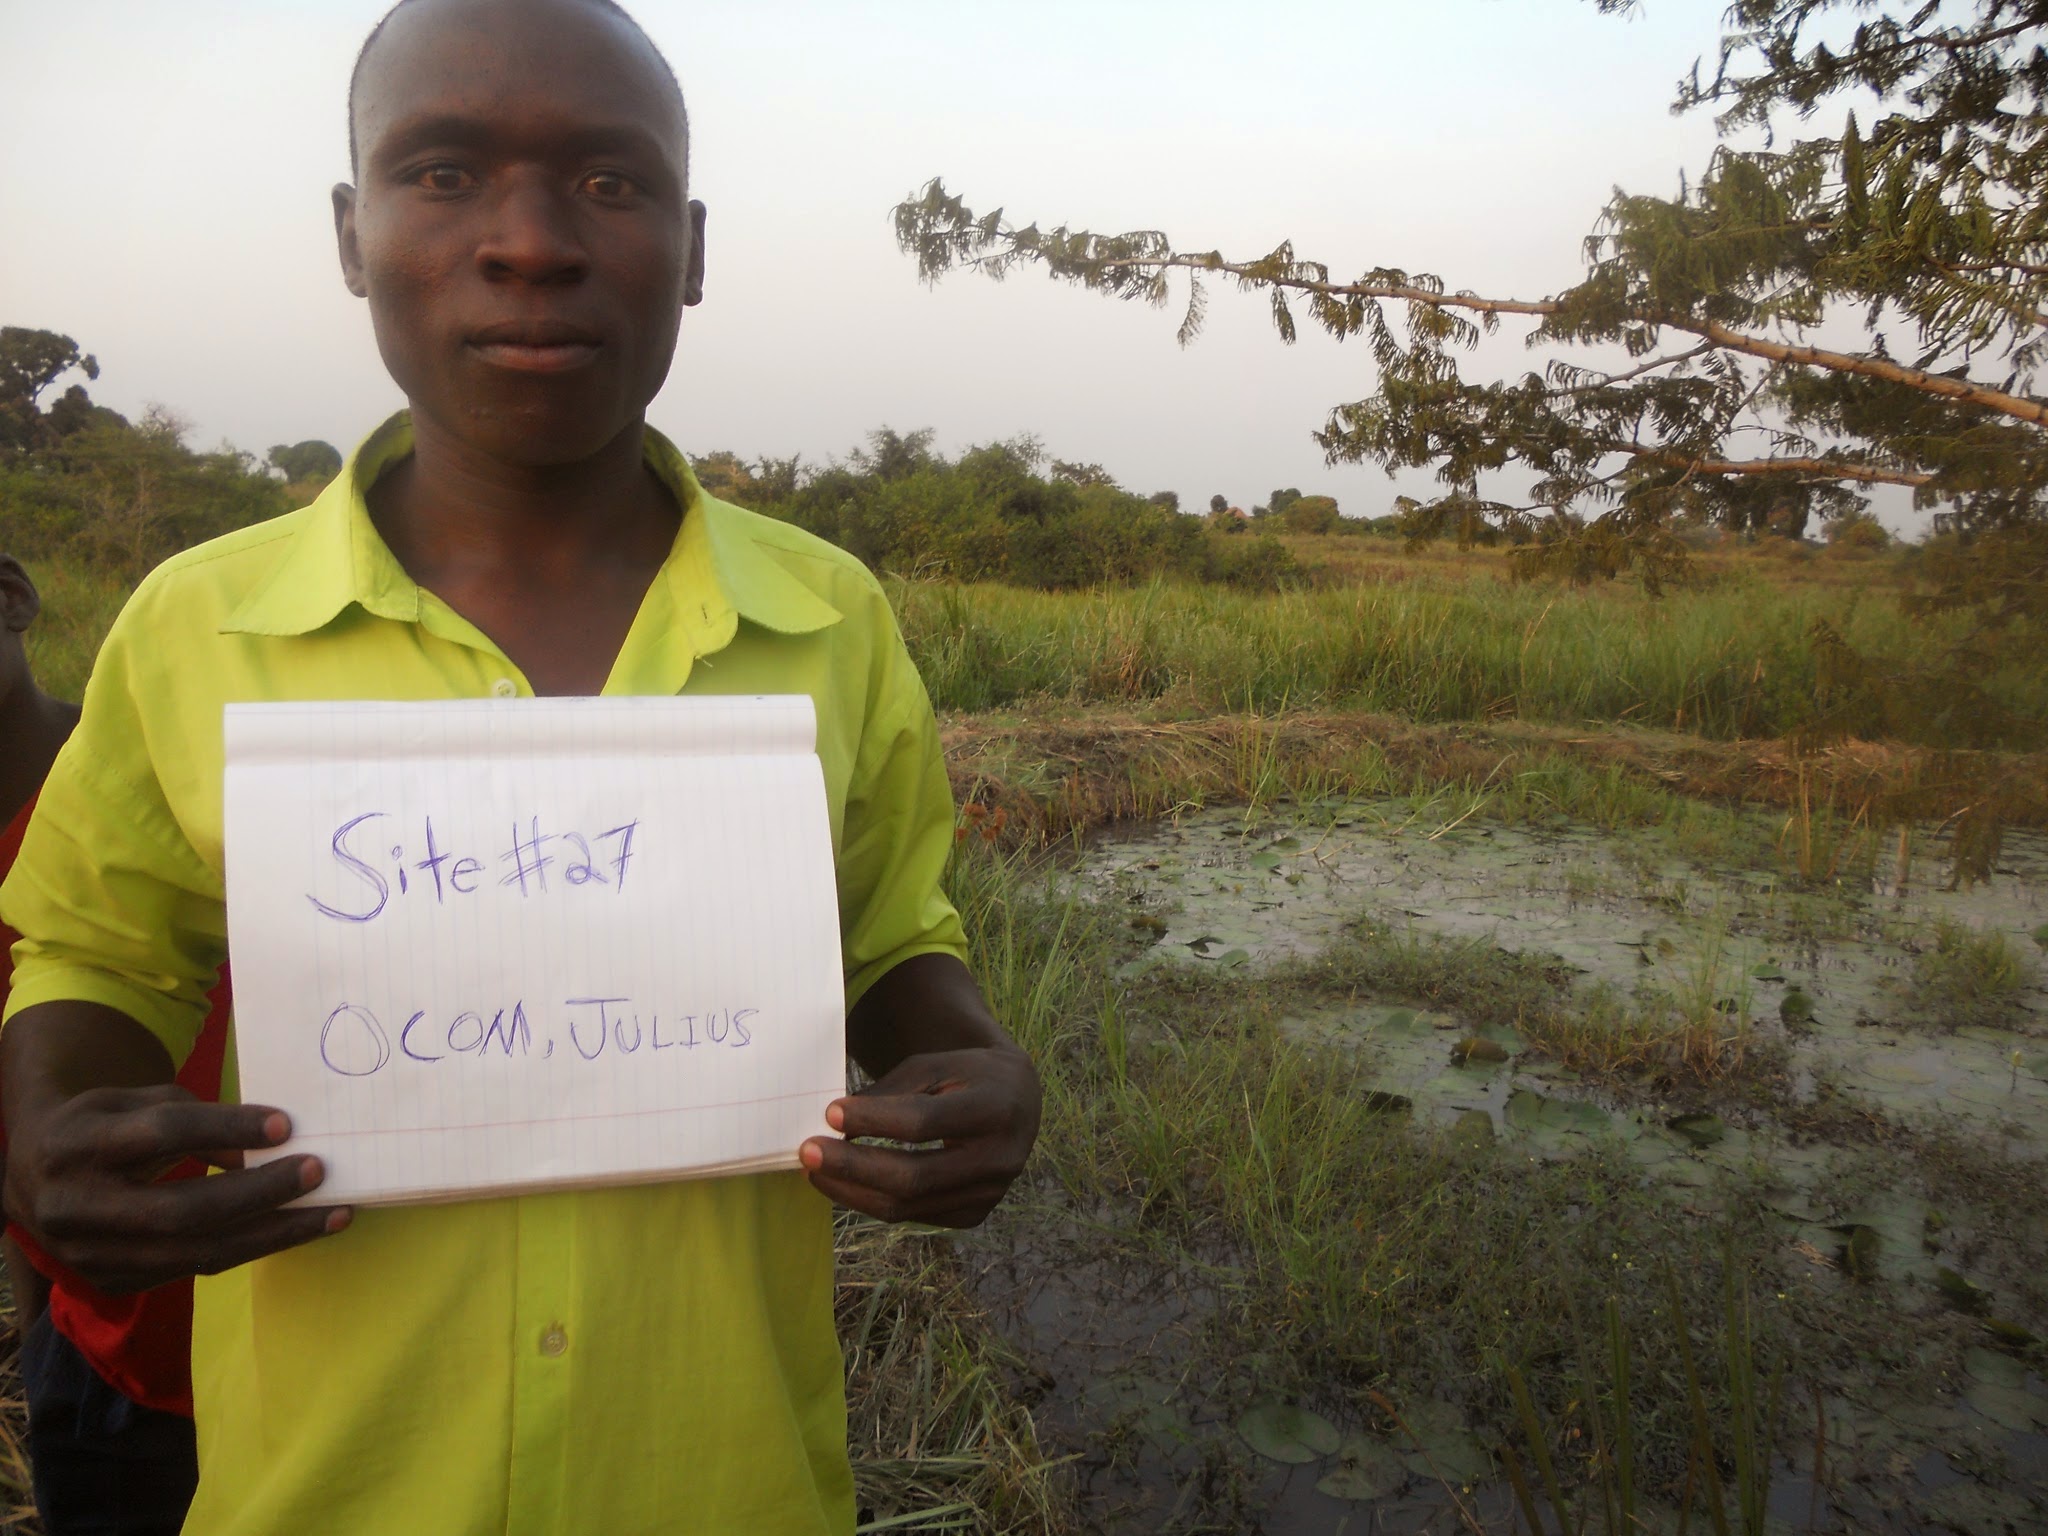 Site #27
OCOM, JULIUS